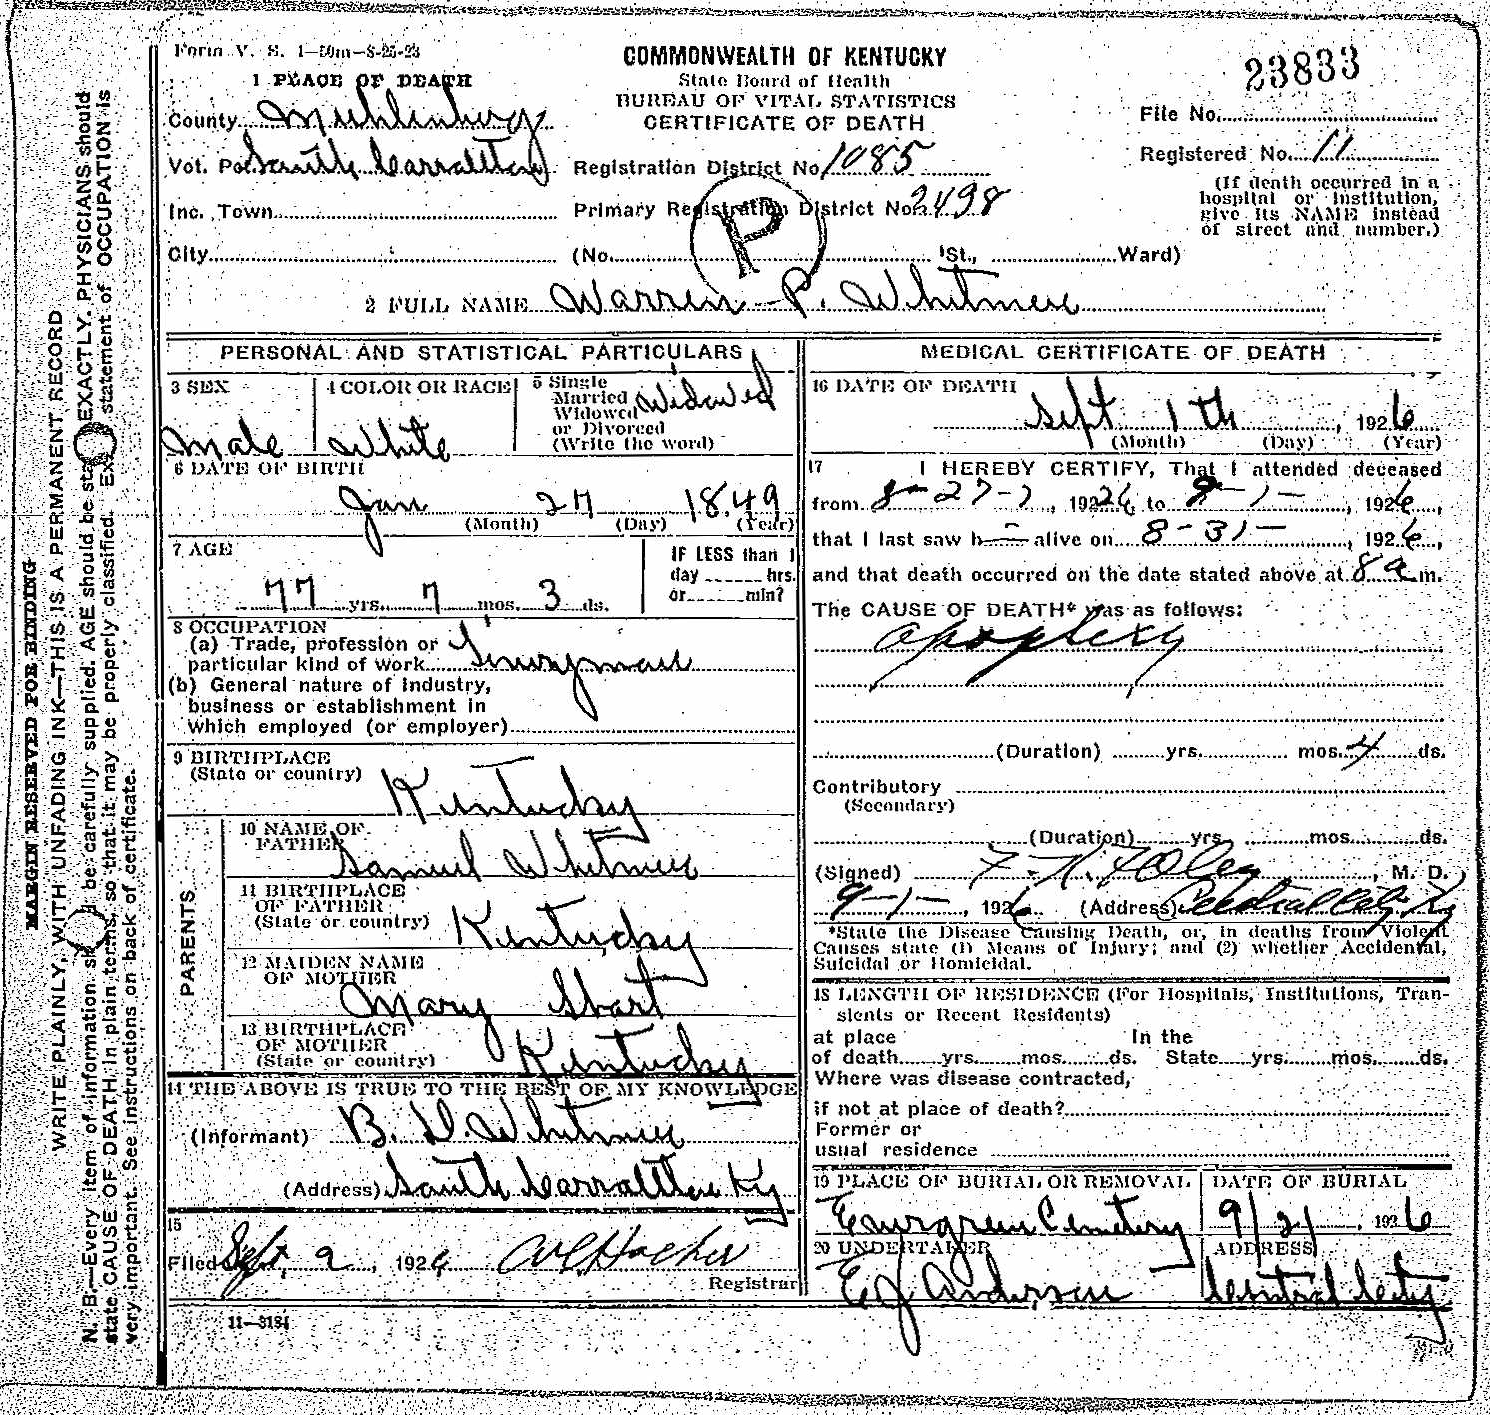 Form V. S. 1—50m—8-25-23
COMMONWEALTH OF KENTUCKY
State Board of Health
BUREAU OF VITAL STATISTICS
CERTIFICATE OF DEATH
23833
File No.
Registered No. 11
(If death occurred in a
hospital or institution,
give its NAME instead
of street and number.)
1 PLACE OF DEATH
County Muhlenburg
Vot. Pc South Carrollton Registration District No 1085
Inc. Town Primary Registration District No. 2498
City (No. St., Ward)
P
2 FULL NAME Warren P. Whitmer
PERSONAL AND STATISTICAL PARTICULARS
3 SEX Male
4 COLOR OR RACE White
5 Single
Married
Widowed
or Divorced
(Write the word)
Widowed
6 DATE OF BIRTH
Jan 27 1849
(Month) (Day) (Year)
7 AGE
77 yrs. 7 mos. 3 ds.
IF LESS than 1
day hrs.
or min?
8 OCCUPATION
(a) Trade, profession or
particular kind of work
(b) General nature of Industry,
business or establishment in
which employed (or employer)
9 BIRTHPLACE
(State or country)
Kentucky
PARENTS
10 NAME OF
FATHER
Samuel Whitmer
11 BIRTHPLACE
OF FATHER
(State or country)
Kentucky
12 MAIDEN NAME
OF MOTHER
Mary
13 BIRTHPLACE
OF MOTHER
(State or country)
Kentucky
14 THE ABOVE IS TRUE TO THE BEST OF MY KNOWLEDGE
(Informant) B. D. Whitmer
(Address) South Carrollton Ky
15
Filed Sept 2, 1926
Registrar
11—3184
MEDICAL CERTIFICATE OF DEATH
16 DATE OF DEATH
Sept 1th, 1926
(Month) (Day) (Year)
17 I HEREBY CERTIFY, That I attended deceased
from 8-27-, 1926 to 9-1-, 1926,
that I last saw h alive on 8-31-, 1926,
and that death occurred on the date stated above at 8 a m.
The CAUSE OF DEATH* was as follows:
apoplexy
(Duration) yrs. mos. 4 ds.
Contributory
(Secondary)
(Duration) yrs. mos. ds.
(Signed), M. D.
9-1-, 1926 (Address) Central City Ky
*State the Disease Causing Death, or, in deaths from Violent
Causes state (1) Means of Injury; and (2) whether Accidental,
Suicidal or Homicidal.
18 LENGTH OF RESIDENCE (For Hospitals, Institutions, Tran-
sients or Recent Residents)
at place In the
of death yrs. mos. ds. State yrs. mos. ds.
Where was disease contracted,
if not at place of death?
Former or
usual residence
19 PLACE OF BURIAL OR REMOVAL
Evergreen Cemetery
DATE OF BURIAL
9/2/, 1926
20 UNDERTAKER
E J Anderson
ADDRESS
Central City
MARGIN RESERVED FOR BINDING
WRITE PLAINLY, WITH UNFADING INK—THIS IS A PERMANENT RECORD
N. B.—Every item of information should be carefully supplied. AGE should be stated EXACTLY. PHYSICIANS should
state CAUSE OF DEATH in plain terms, so that it may be properly classified. Exact statement of OCCUPATION is
very important. See instructions on back of certificate.